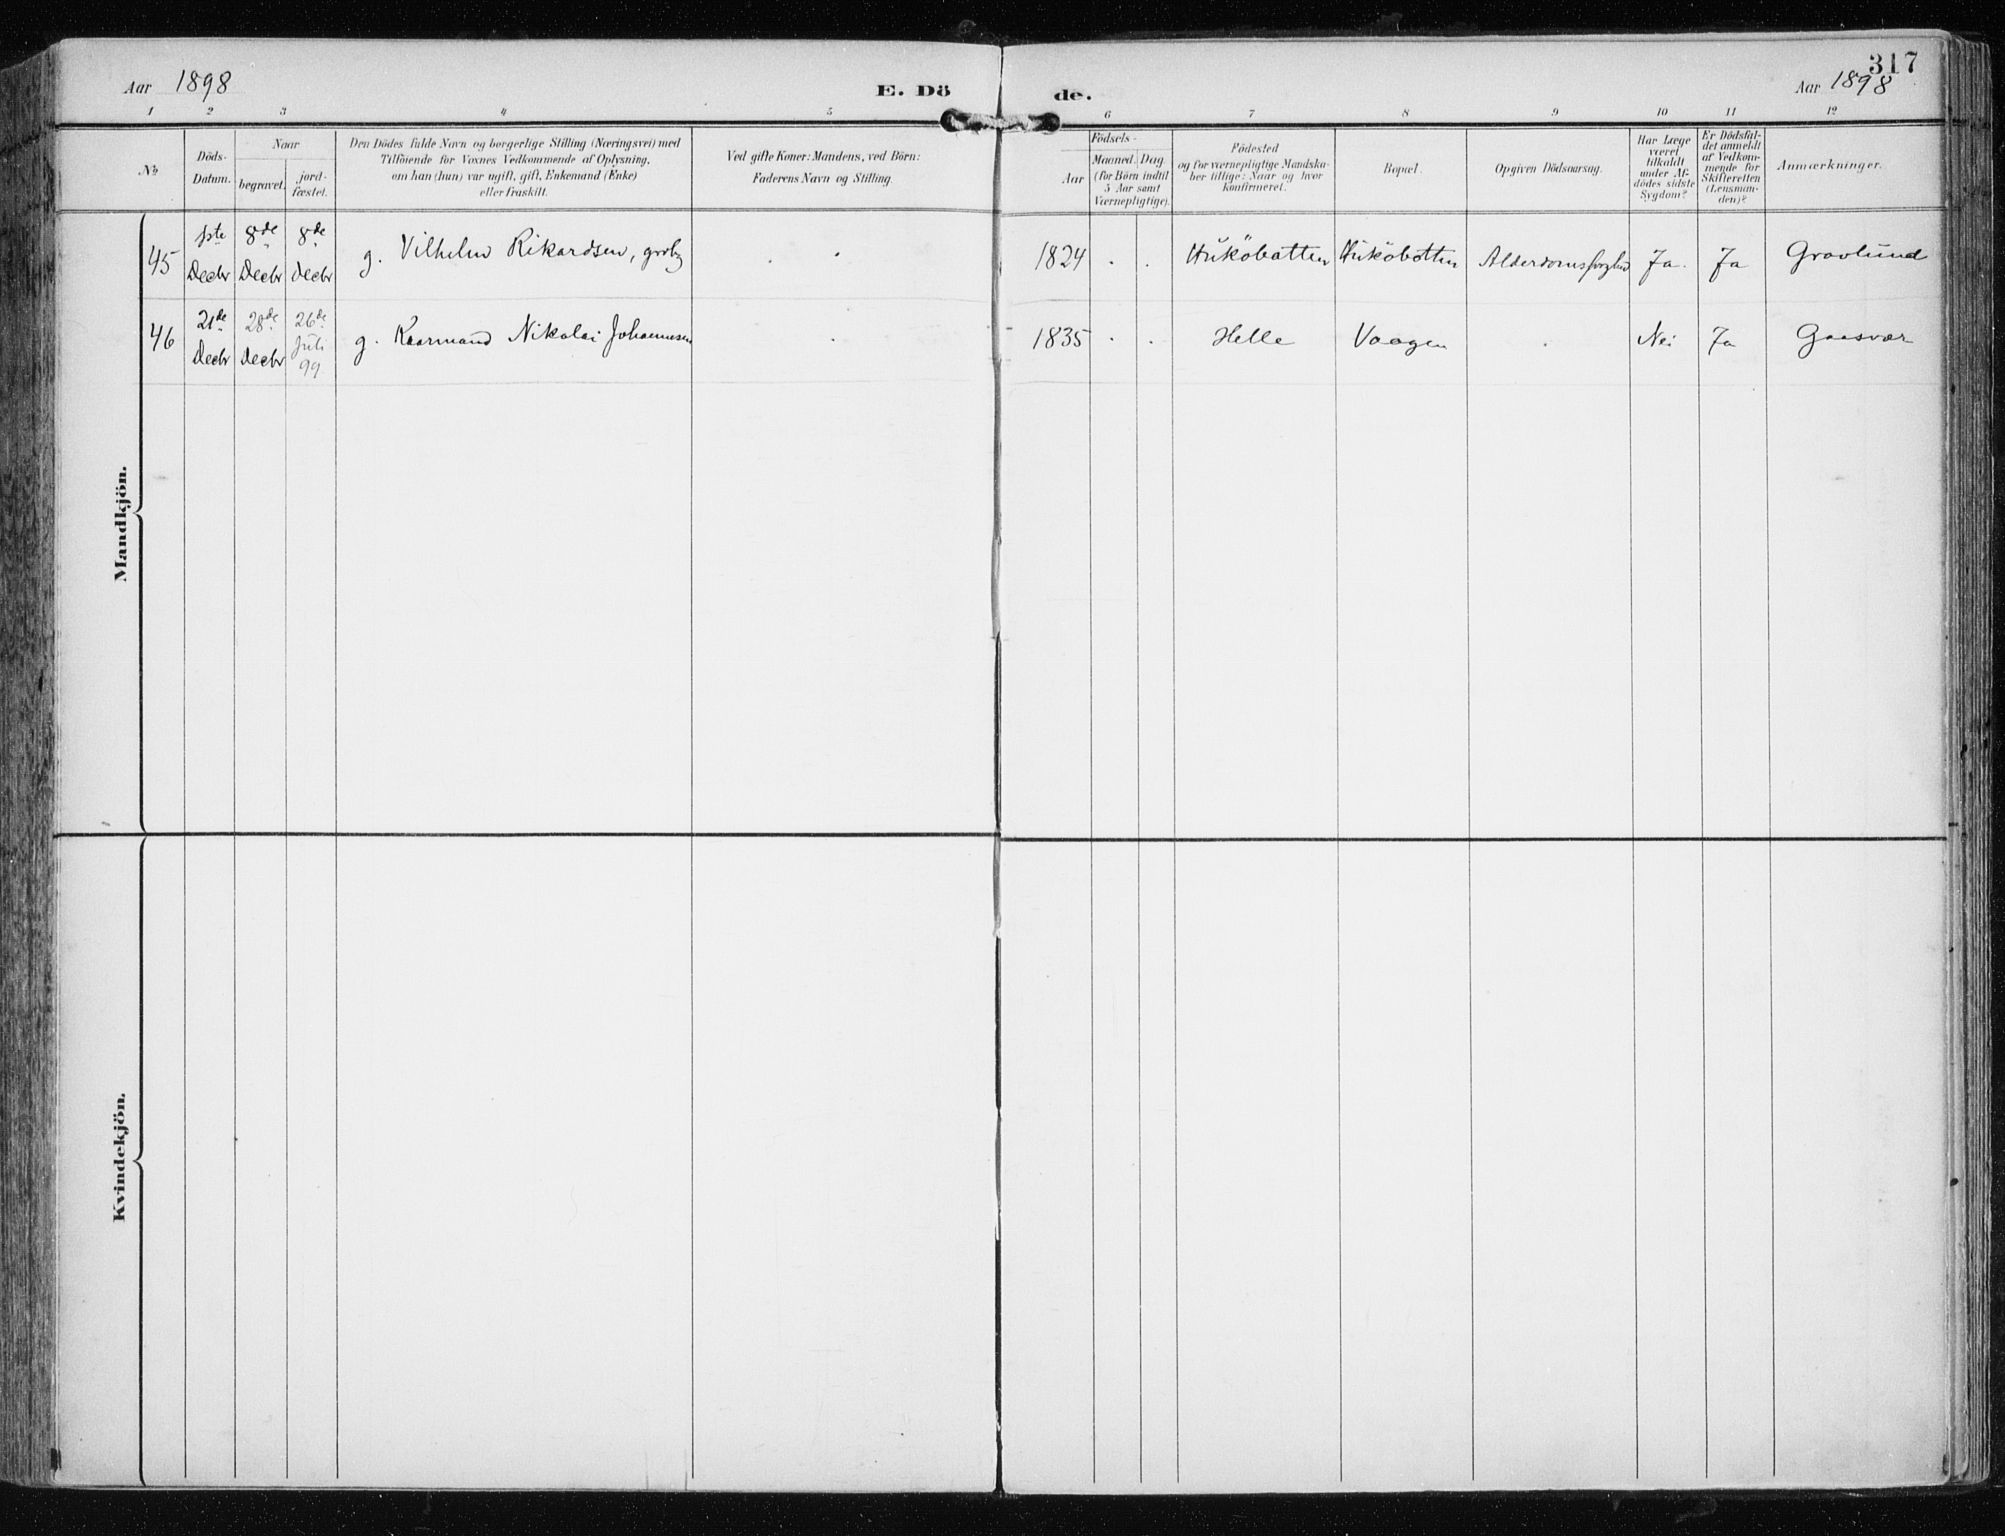 317
Aar 1898
E. Dö
de.
Aar 1898
1 2 3 4 5 6 7 8 9 10 11 12
№
Döds-
Datum.
Naar
begravet.
jord-
fæstet.
Den Dödes fulde Navn og borgerlige Stilling (Næringsvei) med
Tilföiende for Voxnes Vedkommende af Oplysning,
om han (hun) var ugift, gift, Enkemand (Enke)
eller fraskilt.
Ved gifte Koner: Mandens, ved Börn:
Faderens Navn og Stilling.
Födsels-
Aar
Maaned. Dag
(for Börn indtil
5 Aar samt
Værnepligtige).
Födested
og for værnepligtige Mandska-
ber tillige: Naar og hvor
konfirmeret.
Bopæl.
Opgiven Dödsaarsag.
Har Læge
været
tilkaldt
under Af-
dödes sidste
Sygdom?
Er Dödsfal-
det anmeldt
af Vedkom-
mende for
Skifteretten
(Lensman-
den)?
Anmærkninger.
Mandkjön.
45
1ste
Decbr
8de
Decbr
8de
Decbr
g. Vilhelm Rikardsen,
1824
Hŭköbotten
Hŭköbotten
Ja.
Ja
Gravlŭnd
46
21de
Decbr
28de
Decbr
26de
Jŭli
99
g. Kaarmand Nikolai Johannesen
1835
Helle
Vaagen
Nei
Ja
Gaasvær
Kvindekjön.